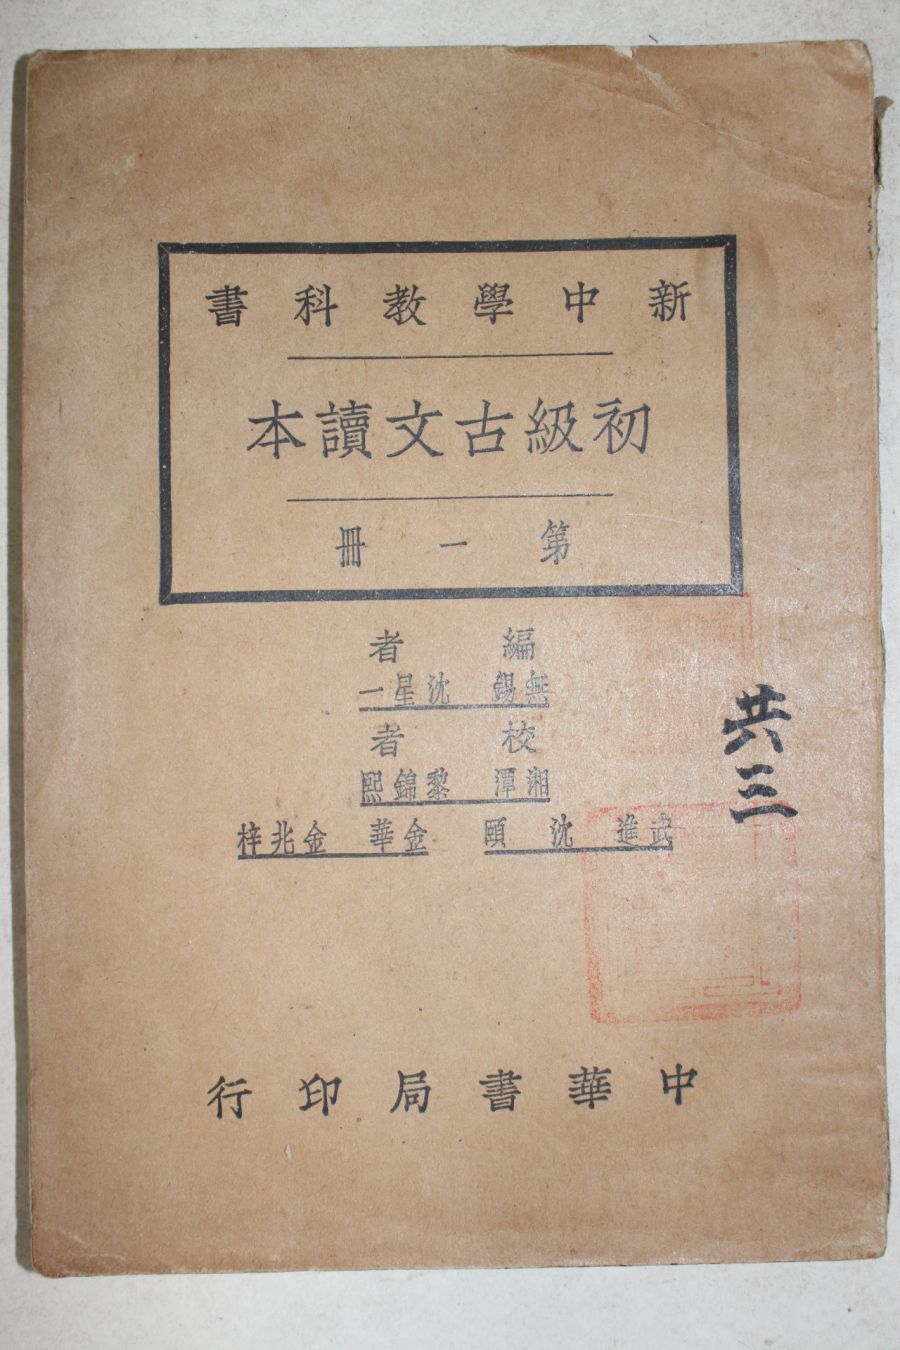 新中學教科書
初級古文讀本
第一冊
編者
無錫 沈星一
校者
湘潭 黎錦熙
武進 沈頤 金華 金兆梓
中華書局印行
共三